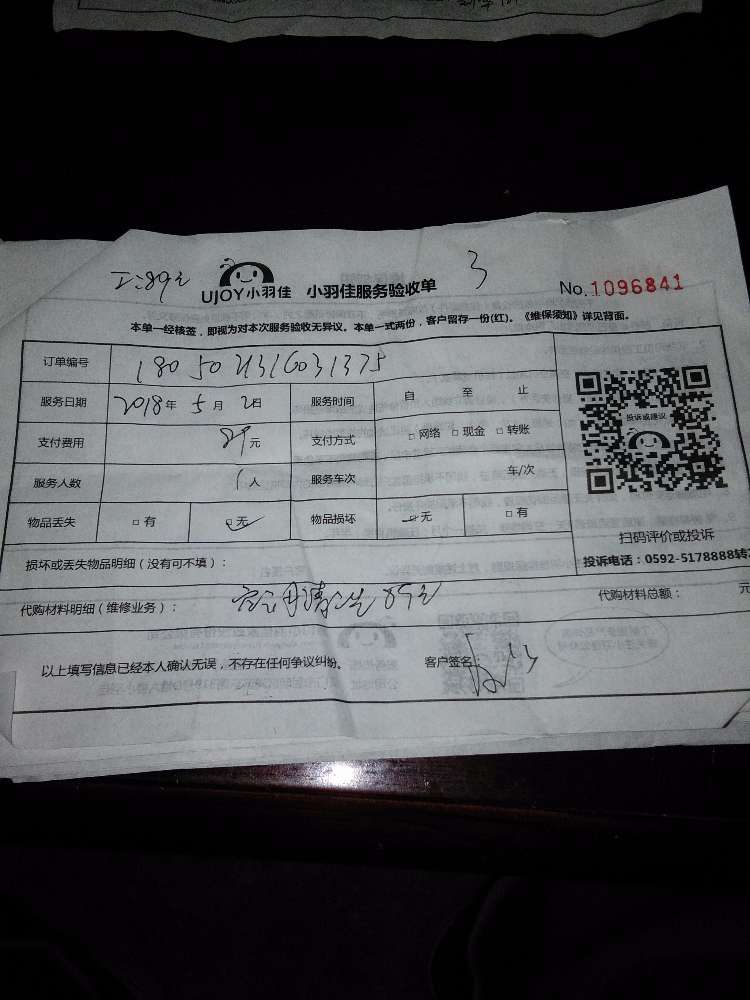 工:89元
UJOY小羽佳 小羽佳服务验收单 3
No.1096841
本单一经核签，即视为对本次服务验收无异议。本单一式两份，客户留存一份(红)。《维保须知》详见背面。
订单编号
服务日期 2018年 5月 2日 服务时间 自 至 止
支付费用 89元 支付方式 □网络 □现金 □转账
服务人数 1人 服务车次 车/次
物品丢失 □有 □无 物品损坏 □无 □有
投诉或建议
扫码评价或投诉
投诉电话：0592-5178888转
损坏或丢失物品明细（没有可不填）：
代购材料明细（维修业务）： 89元 代购材料总额： 元
以上填写信息已经本人确认无误，不存在任何争议纠纷。 客户签名：